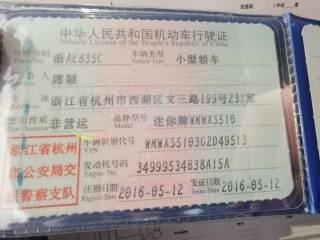 中华人民共和国机动车行驶证
Vehicle License of the People's Republic of China
号牌号码 浙AE835C 车辆类型 小型轿车
Plate No. Vehicle Type
席颖
浙江省杭州市西湖区文三路199号231室
使用性质 非营运 品牌型号 迷你牌WMWXS510
Use Character Model
浙江省杭州
市公安局交
通警察支队
车辆识别代号 WMWXS5103G2D49513
VIN
发动机号码 34999534B38A15A
Engine No.
注册日期 2016-05-12 发证日期 2016-05-12
Register Date Issue Date